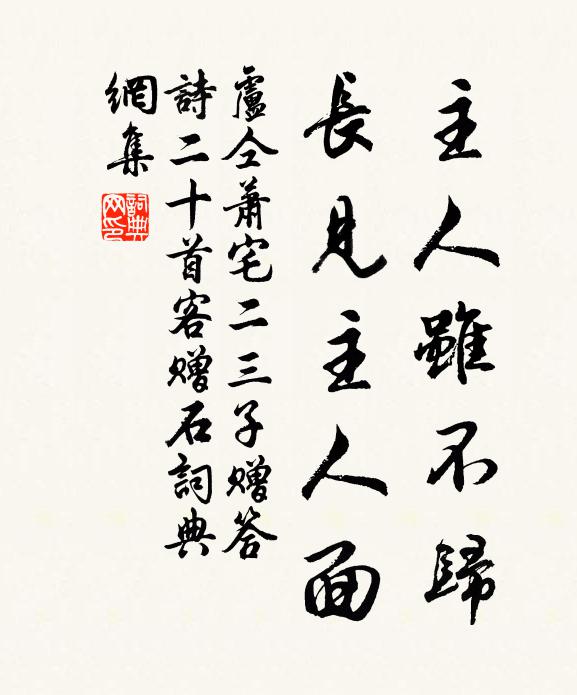 主人雖不歸
長見主人面
盧仝蕭宅二三子贈答
詩二十首客贈石詞典
網集
詞典
网印